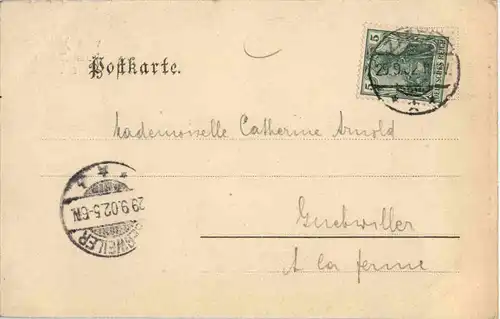 Postkarte.
5 5
DEUTSCHES REICH
29.9.02
Mademoiselle Catherine Arnold
29.9.02.5-6N.
Guebwiller
A la ferme